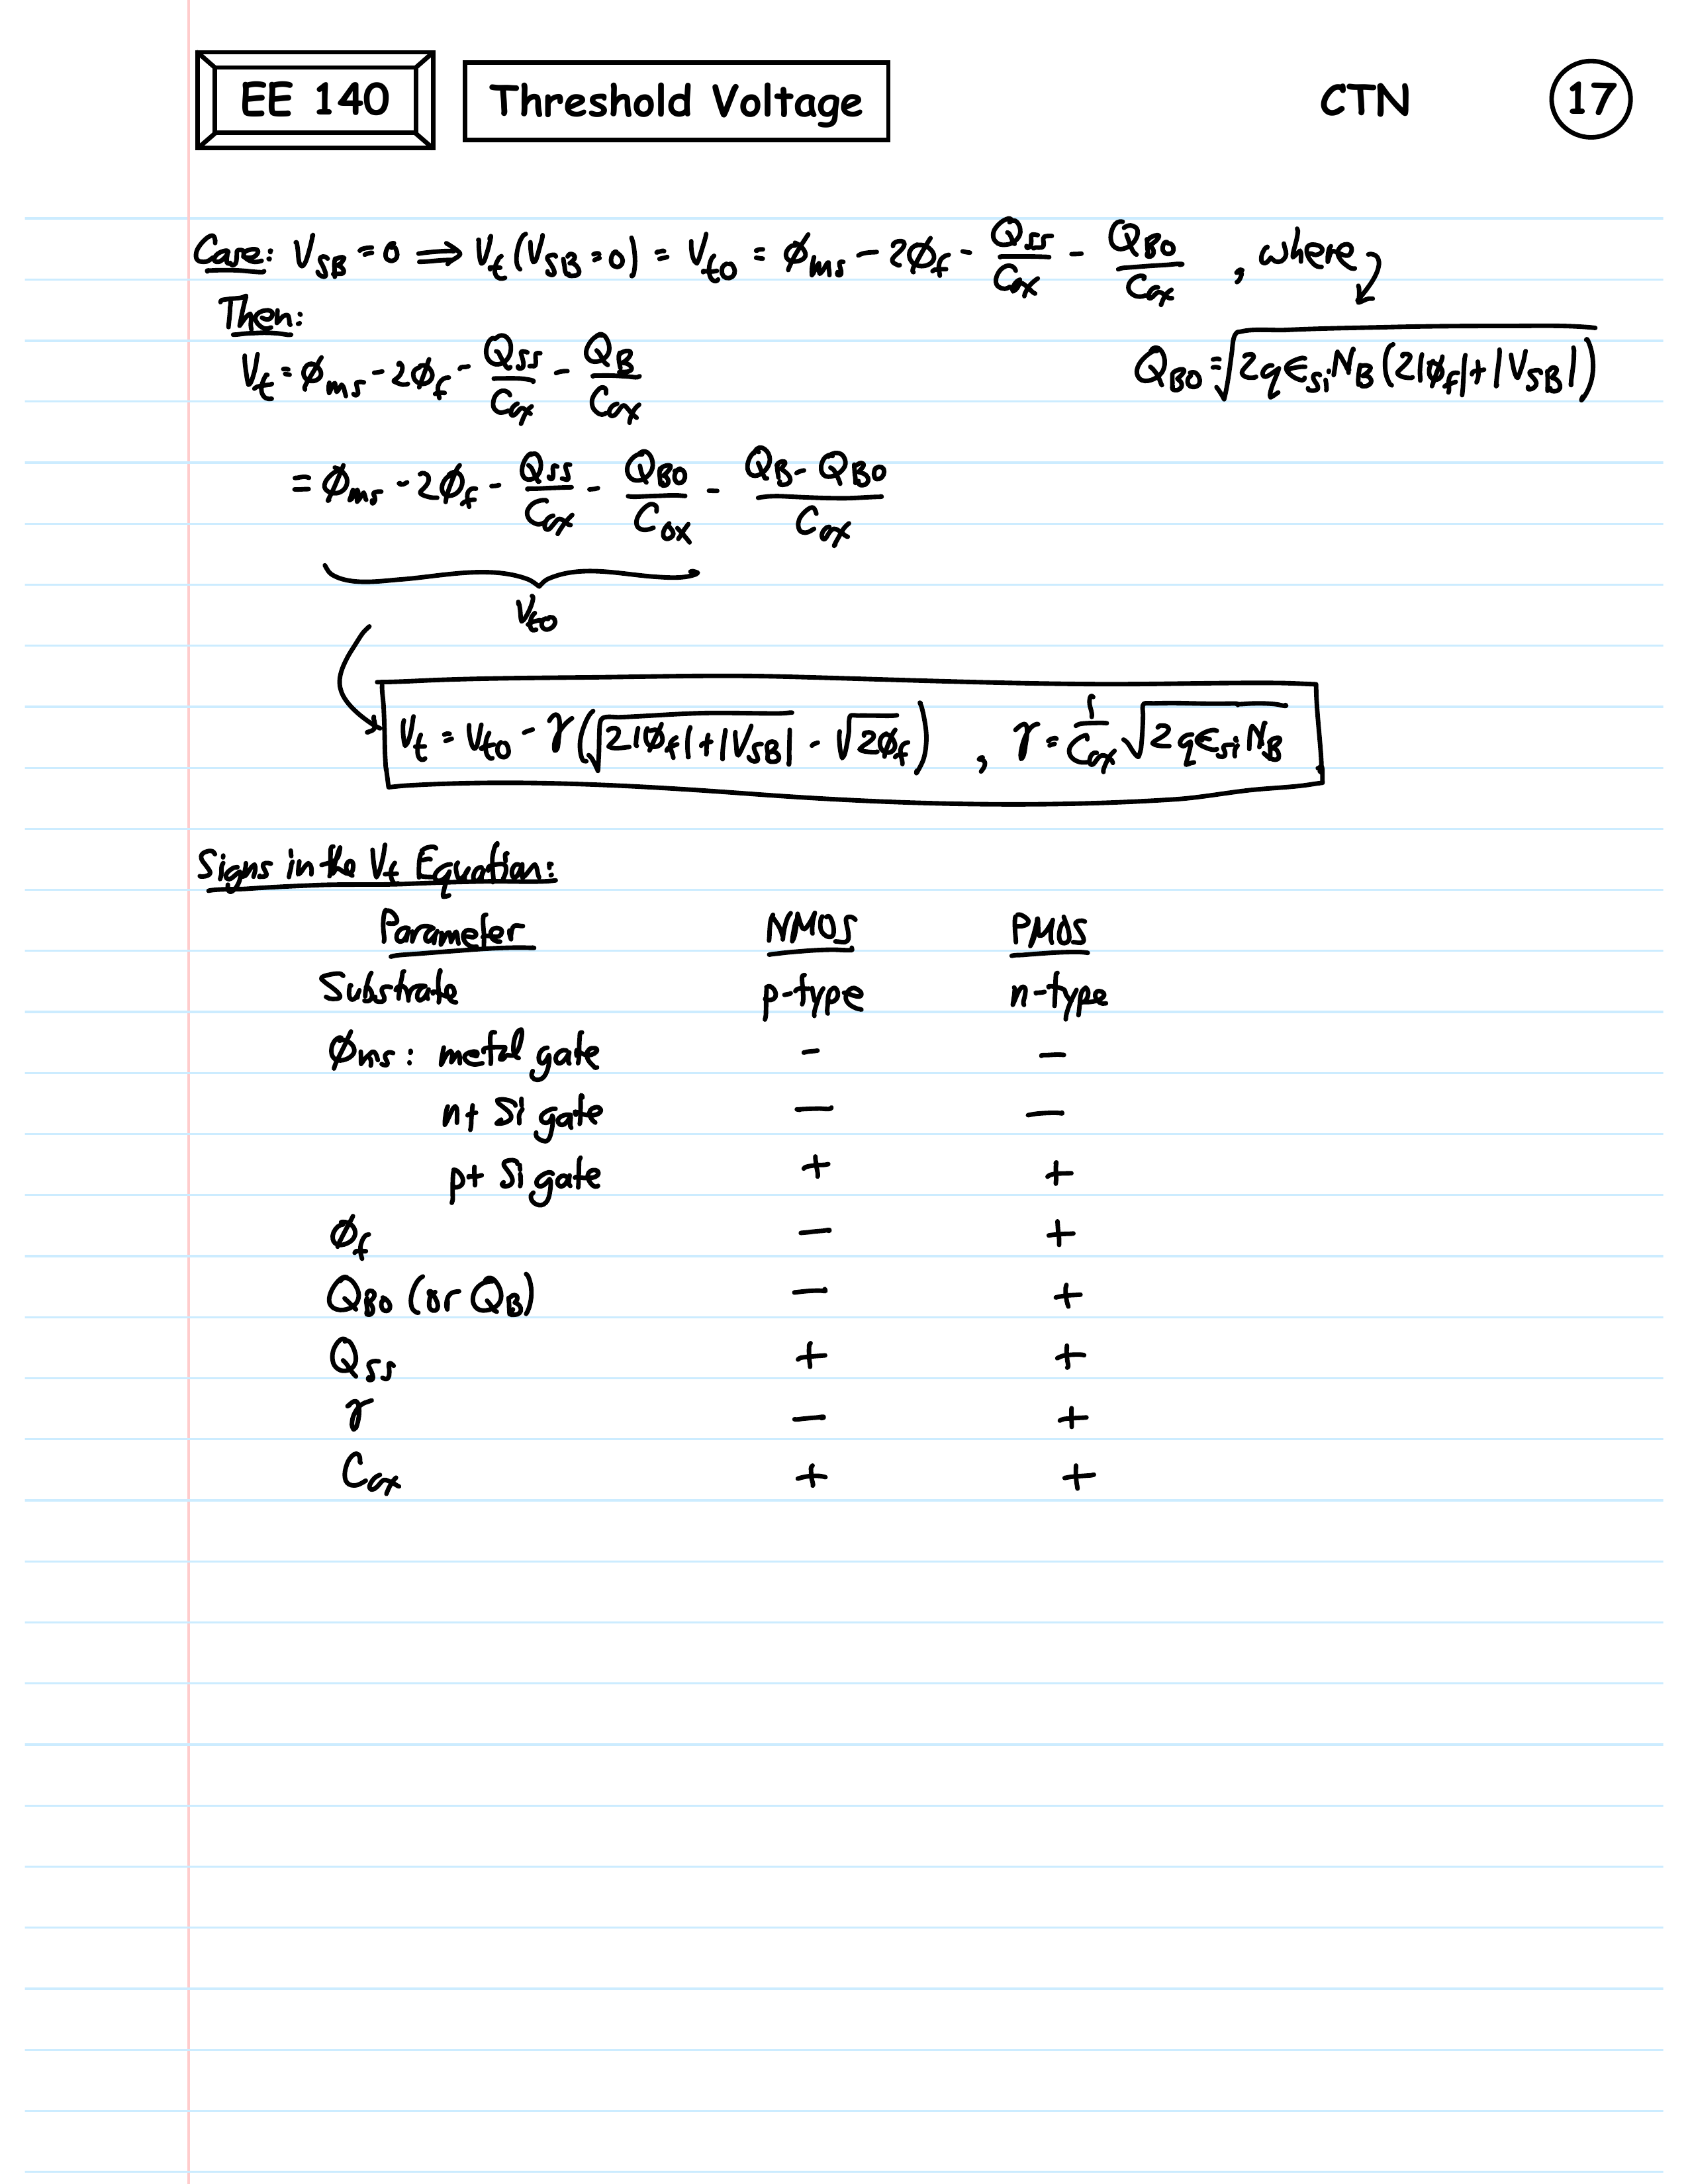 EE 140 Threshold Voltage CTN 17
Case: V_SB = 0 ⟹ V_t (V_SB = 0) = V_t0 = ϕ_ms - 2ϕ_f - Q_ss/C_ox - Q_B0/C_ox , where
Then:
V_t = ϕ_ms - 2ϕ_f - Q_ss/C_ox - Q_B/C_ox
Q_B0 = √(2qϵ_si N_B (2|ϕ_f| + |V_SB|))
= ϕ_ms - 2ϕ_f - Q_ss/C_ox - Q_B0/C_ox - (Q_B - Q_B0)/C_ox
V_t0
V_t = V_t0 - γ(√(2|ϕ_f| + |V_SB|) - √(2ϕ_f)) , γ = 1/C_ox √(2qϵ_si N_B)
Signs in the V_t Equation:
Parameter NMOS PMOS
Substrate p-type n-type
ϕ_ms : metal gate - -
n+ Si gate - -
p+ Si gate + +
ϕ_f - +
Q_B0 (or Q_B) - +
Q_ss + +
γ - +
C_ox + +